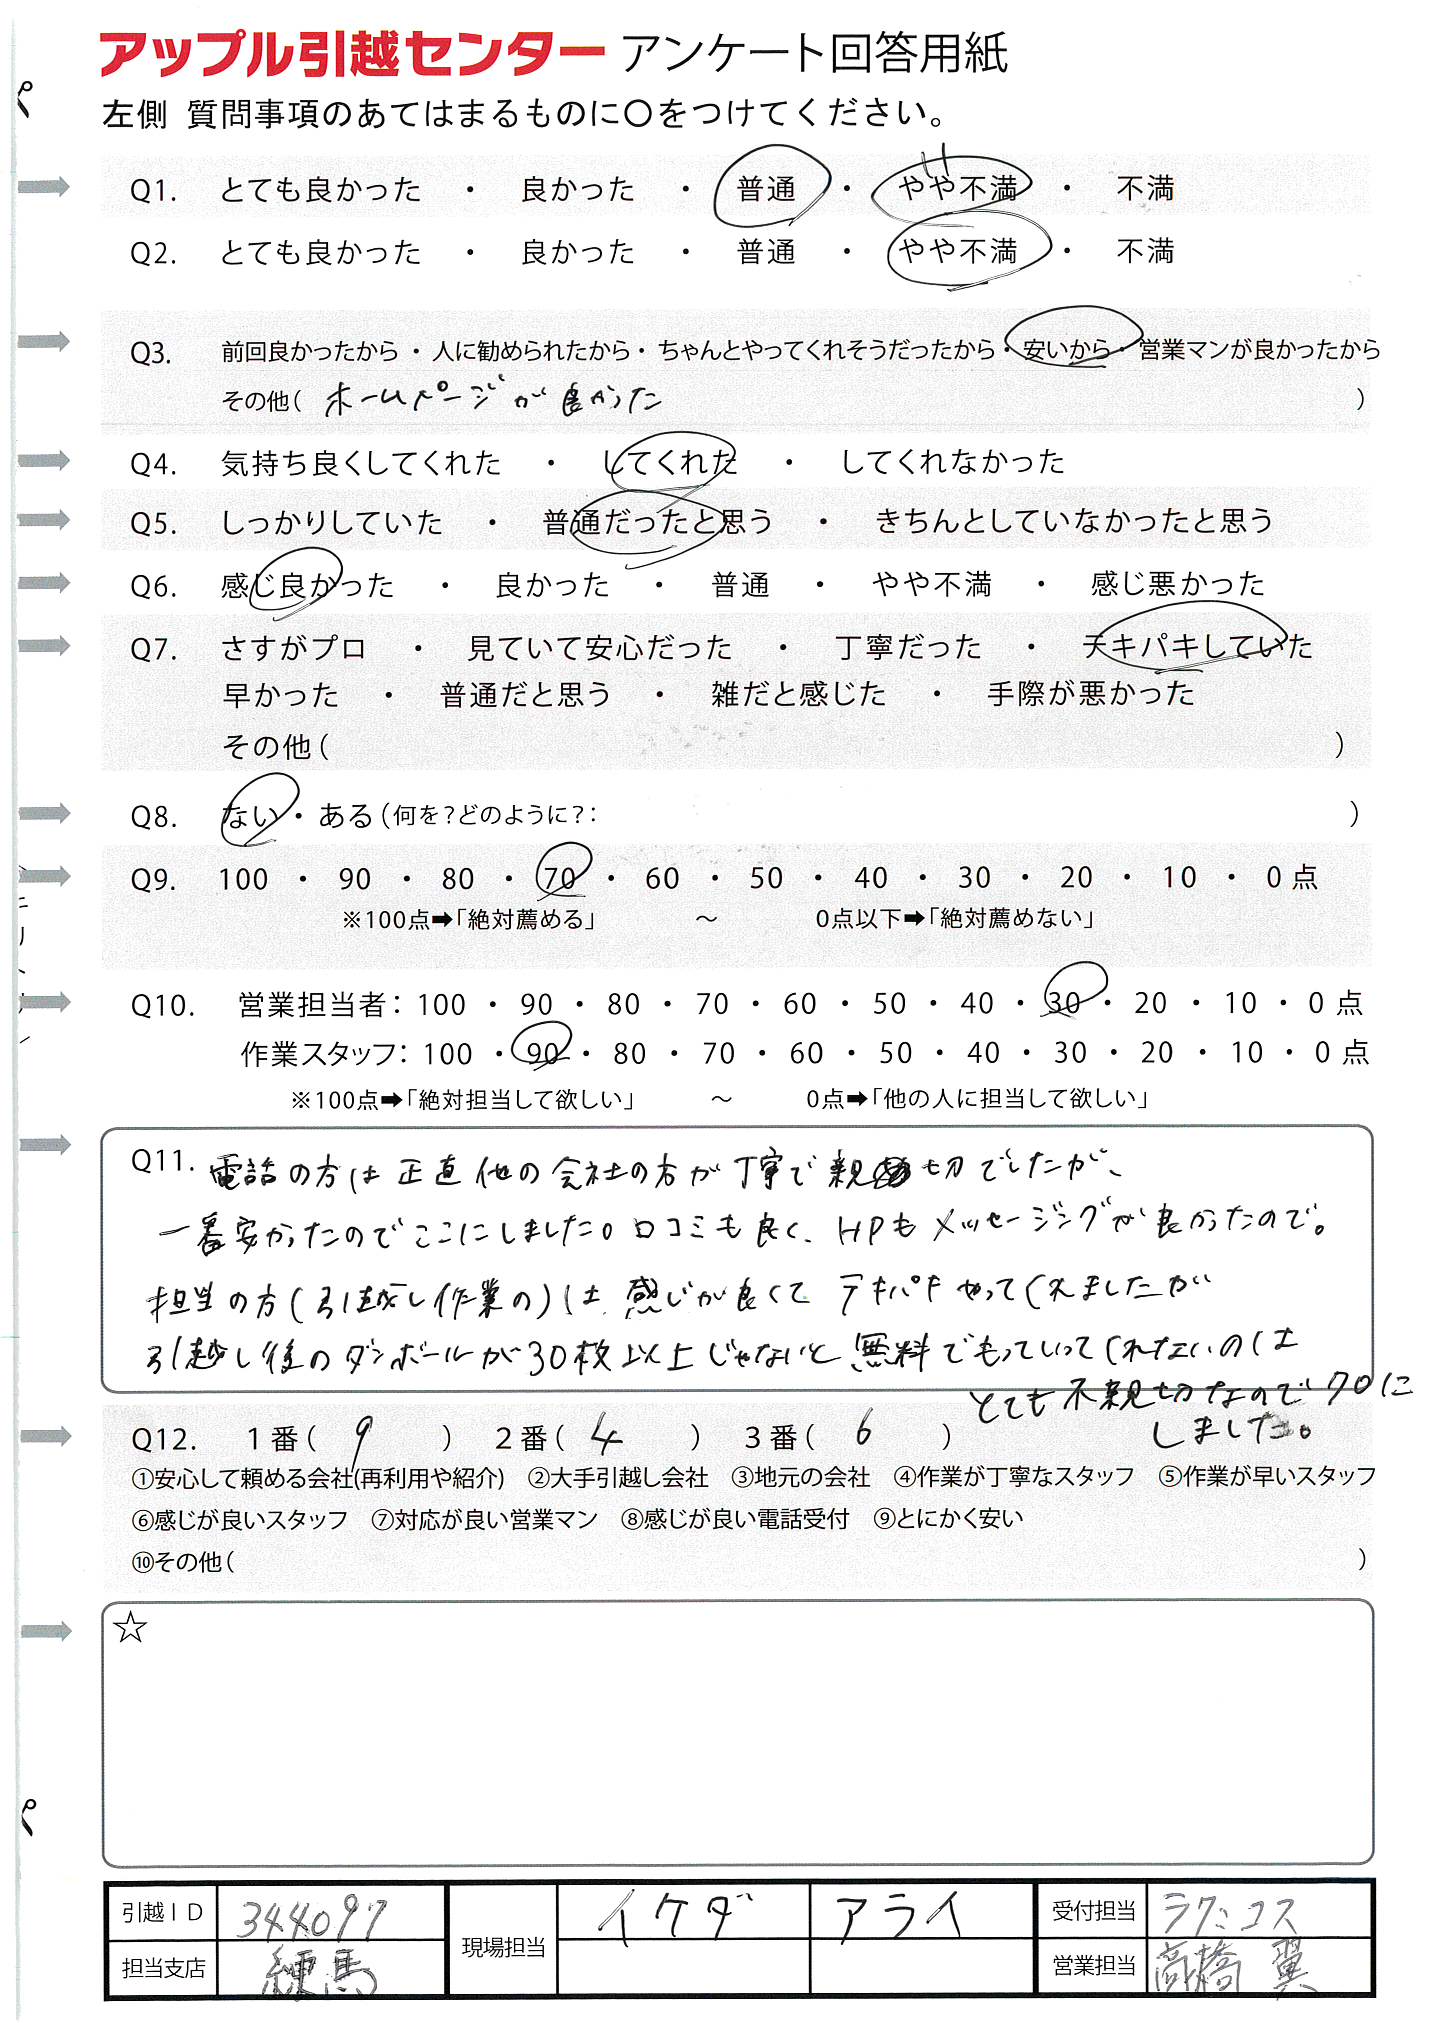 アップル引越センター アンケート回答用紙
左側 質問事項のあてはまるものに〇をつけてください。
Q1. とても良かった ・ 良かった ・ 普通 ・ やや不満 ・ 不満
Q2. とても良かった ・ 良かった ・ 普通 ・ やや不満 ・ 不満
Q3. 前回良かったから ・ 人に勧められたから ・ ちゃんとやってくれそうだったから ・ 安いから ・ 営業マンが良かったから
その他( ホームページが良かった )
Q4. 気持ち良くしてくれた ・ してくれた ・ してくれなかった
Q5. しっかりしていた ・ 普通だったと思う ・ きちんとしていなかったと思う
Q6. 感じ良かった ・ 良かった ・ 普通 ・ やや不満 ・ 感じ悪かった
Q7. さすがプロ ・ 見ていて安心だった ・ 丁寧だった ・ テキパキしていた
早かった ・ 普通だと思う ・ 雑だと感じた ・ 手際が悪かった
その他( )
Q8. ない ・ ある(何を?どのように?: )
Q9. 100 ・ 90 ・ 80 ・ 70 ・ 60 ・ 50 ・ 40 ・ 30 ・ 20 ・ 10 ・ 0 点
※100点➡「絶対薦める」 ～ 0点以下➡「絶対薦めない」
Q10. 営業担当者: 100 ・ 90 ・ 80 ・ 70 ・ 60 ・ 50 ・ 40 ・ 30 ・ 20 ・ 10 ・ 0 点
作業スタッフ: 100 ・ 90 ・ 80 ・ 70 ・ 60 ・ 50 ・ 40 ・ 30 ・ 20 ・ 10 ・ 0 点
※100点➡「絶対担当して欲しい」 ～ 0点➡「他の人に担当して欲しい」
Q11. 電話の方は正直他の会社の方が丁寧で親切でしたが、
一番安かったのでここにしました。口コミも良く、HPもメッセージングが良かったので。
担当の方(引越し作業の)は感じが良くてテキパキやってくれましたが
引越し後のダンボールが30枚以上じゃないと無料でもっていってくれないのは
とても不親切なので70に
しました。
Q12. 1番( 9 ) 2番( 4 ) 3番( 6 )
①安心して頼める会社(再利用や紹介) ②大手引越し会社 ③地元の会社 ④作業が丁寧なスタッフ ⑤作業が早いスタッフ
⑥感じが良いスタッフ ⑦対応が良い営業マン ⑧感じが良い電話受付 ⑨とにかく安い
⑩その他( )
☆
引越ID 344097 現場担当 イケダ アライ 受付担当 ラクニコス
担当支店 練馬 営業担当 高橋 翼